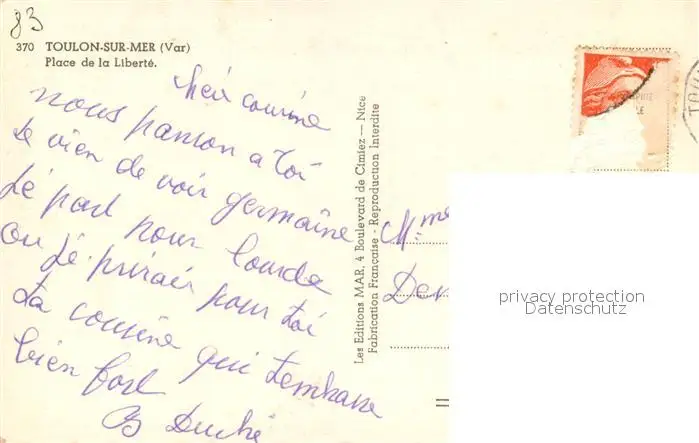 83
370 TOULON-SUR-MER (Var)
Place de la Liberté.
chèr cousine
nous panson a toi
je vien de voir germaine
Jé part pour lourde
ou Jé prirair pour toi
ta cousine qui tembrasse
bien fort
B Duché
Les Editions MAR, 4 Boulevard de Cimiez — Nice
Fabrication Française - Reproduction Interdite
Mme
privacy protection
Datenschutz